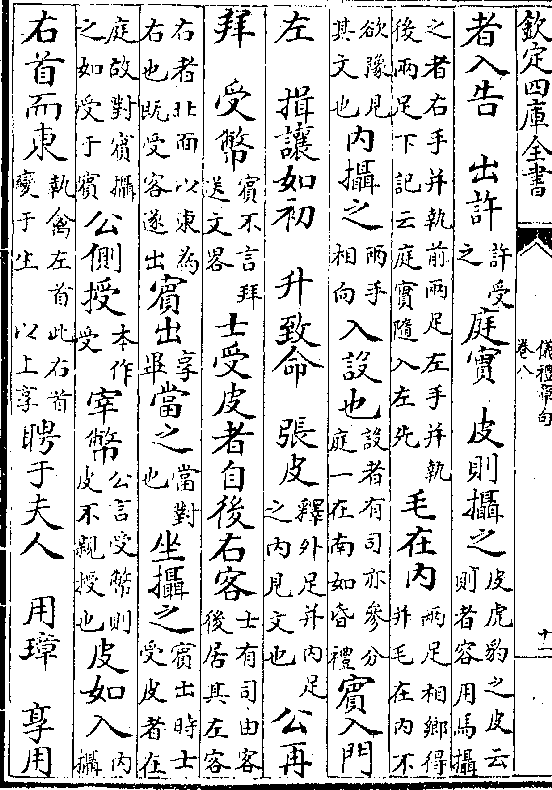 欽定四庫全書
儀禮章句
卷八
十二
者入告 出許許受之庭實 皮則攝之皮虎豹之皮云則者容用馬攝
之者右手并執前兩足左手并執後兩足下記云庭實隨入左先毛在内兩足相鄉得并毛在内不
欲豫見其文也内攝之兩手相向入設也設者有司亦參分庭一在南如昏禮賓入門
左 揖讓如初 升致命 張皮釋外足并内足之内見文也公再
拜 受幣賓不言拜送文畧士受皮者自後右客士有司由客後居其左客
右者北面以東為右也既受客遂出賓出享畢當之當對也坐攝之賓出時士受皮者在
庭故對賓攝之如受于賓公側授本作受宰幣公言受幣則皮不親授也皮如入内攝
右首而東執禽左首此右首變于生 以上享聘于夫人 用璋 享用